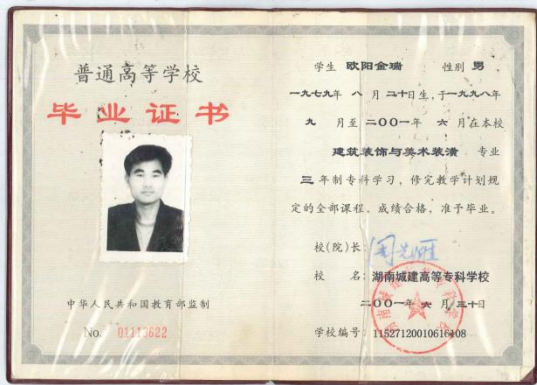 普通高等学校
毕业证书
中华人民共和国教育部监制
No. 01113622
学生 欧阳金瑞 性别 男,
一九七九年 八 月 二十日生,于一九九八年
九 月至 二〇〇一年 六 月在本校
建筑装饰与美术装潢 专业
三 年制专科学习,修完教学计划规
定的全部课程,成绩合格,准予毕业。
校(院)长:
校 名:湖南城建高等专科学校
二〇〇一年 六 月 三十日
学校编号:11527120010616408